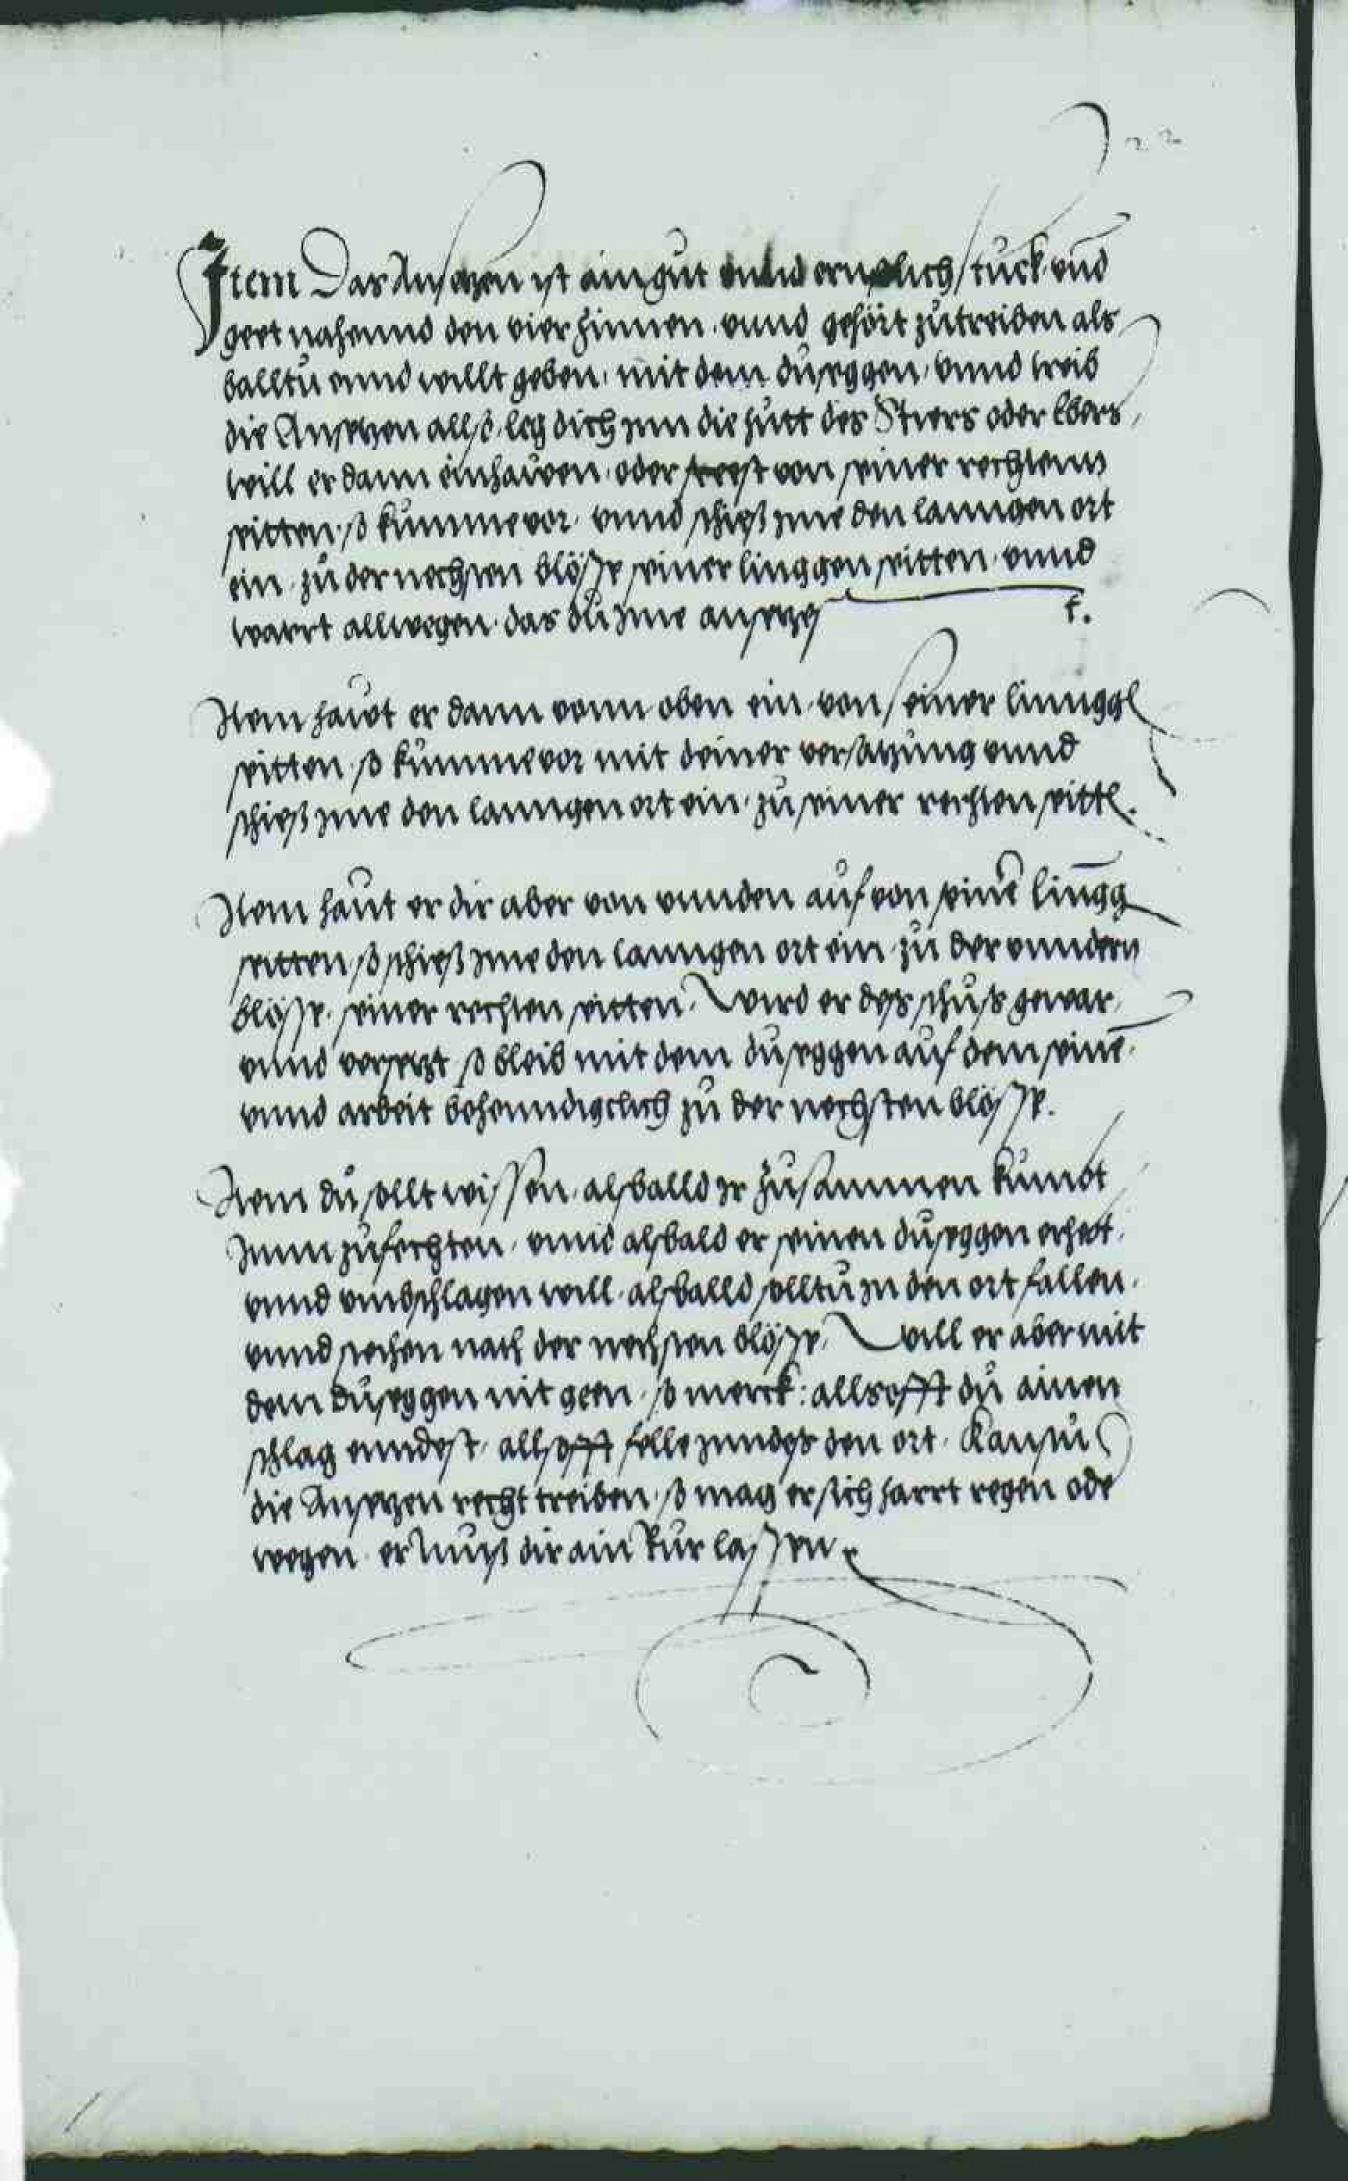 22
Item Das Ansetzen ist ain gut vnnd ernstlich stuck vnd
geet nahennd den vier hinnen. vnnd gehört zutreiben als
balltu ennd willt geben, mit dem duseggen, vnnd treib
die Ansetzen allso, leg dich inn die hutt des Stiers oder Ebers,
will er dann einhawen. oder stost von seiner rechtenn
seitten, so kumme vor. vnnd schieß ime den lanngen ort
ein. zu der nechsten blösse seiner linggen seitten. vnnd
wartt allwegen. das du ime ansetzest
Item hawt er dann vonn oben ein. von seiner linngge
seitten. so kumme vor mit deiner versatzung vnnd
schieß ime den lanngen ort ein. zu seiner rechten seitte.
Item haut er dir aber von vnnden auf von seine lingg
seitten, so schieß ime den lanngen ort ein. zu der vnndern
blösse. seiner rechten seitten. Wird er des schuss gewar,
vnnd versetzt so bleib mit dem duseggen auf dem seine.
vnnd arbeit behenndigclich zu der nechsten blösse.
Item du sollt wissen, alsballd ir zusammen kumbt
inn zufechten, vnnd alsbald er seinen duseggen erhebt.
vnnd vmbschlagen will, alsballd solltu in den ort fallen.
vnnd stechen nach der nechsten blösse. Will er aber mit
dem duseggen nit geen. so merck: allsofft du ainen
schlag enndest. allsofft felle inndes den ort. Kanstu
die Ansetzen recht treiben, so mag er sich hartt regen ode
wegen. er muß dir ain kur lassen.